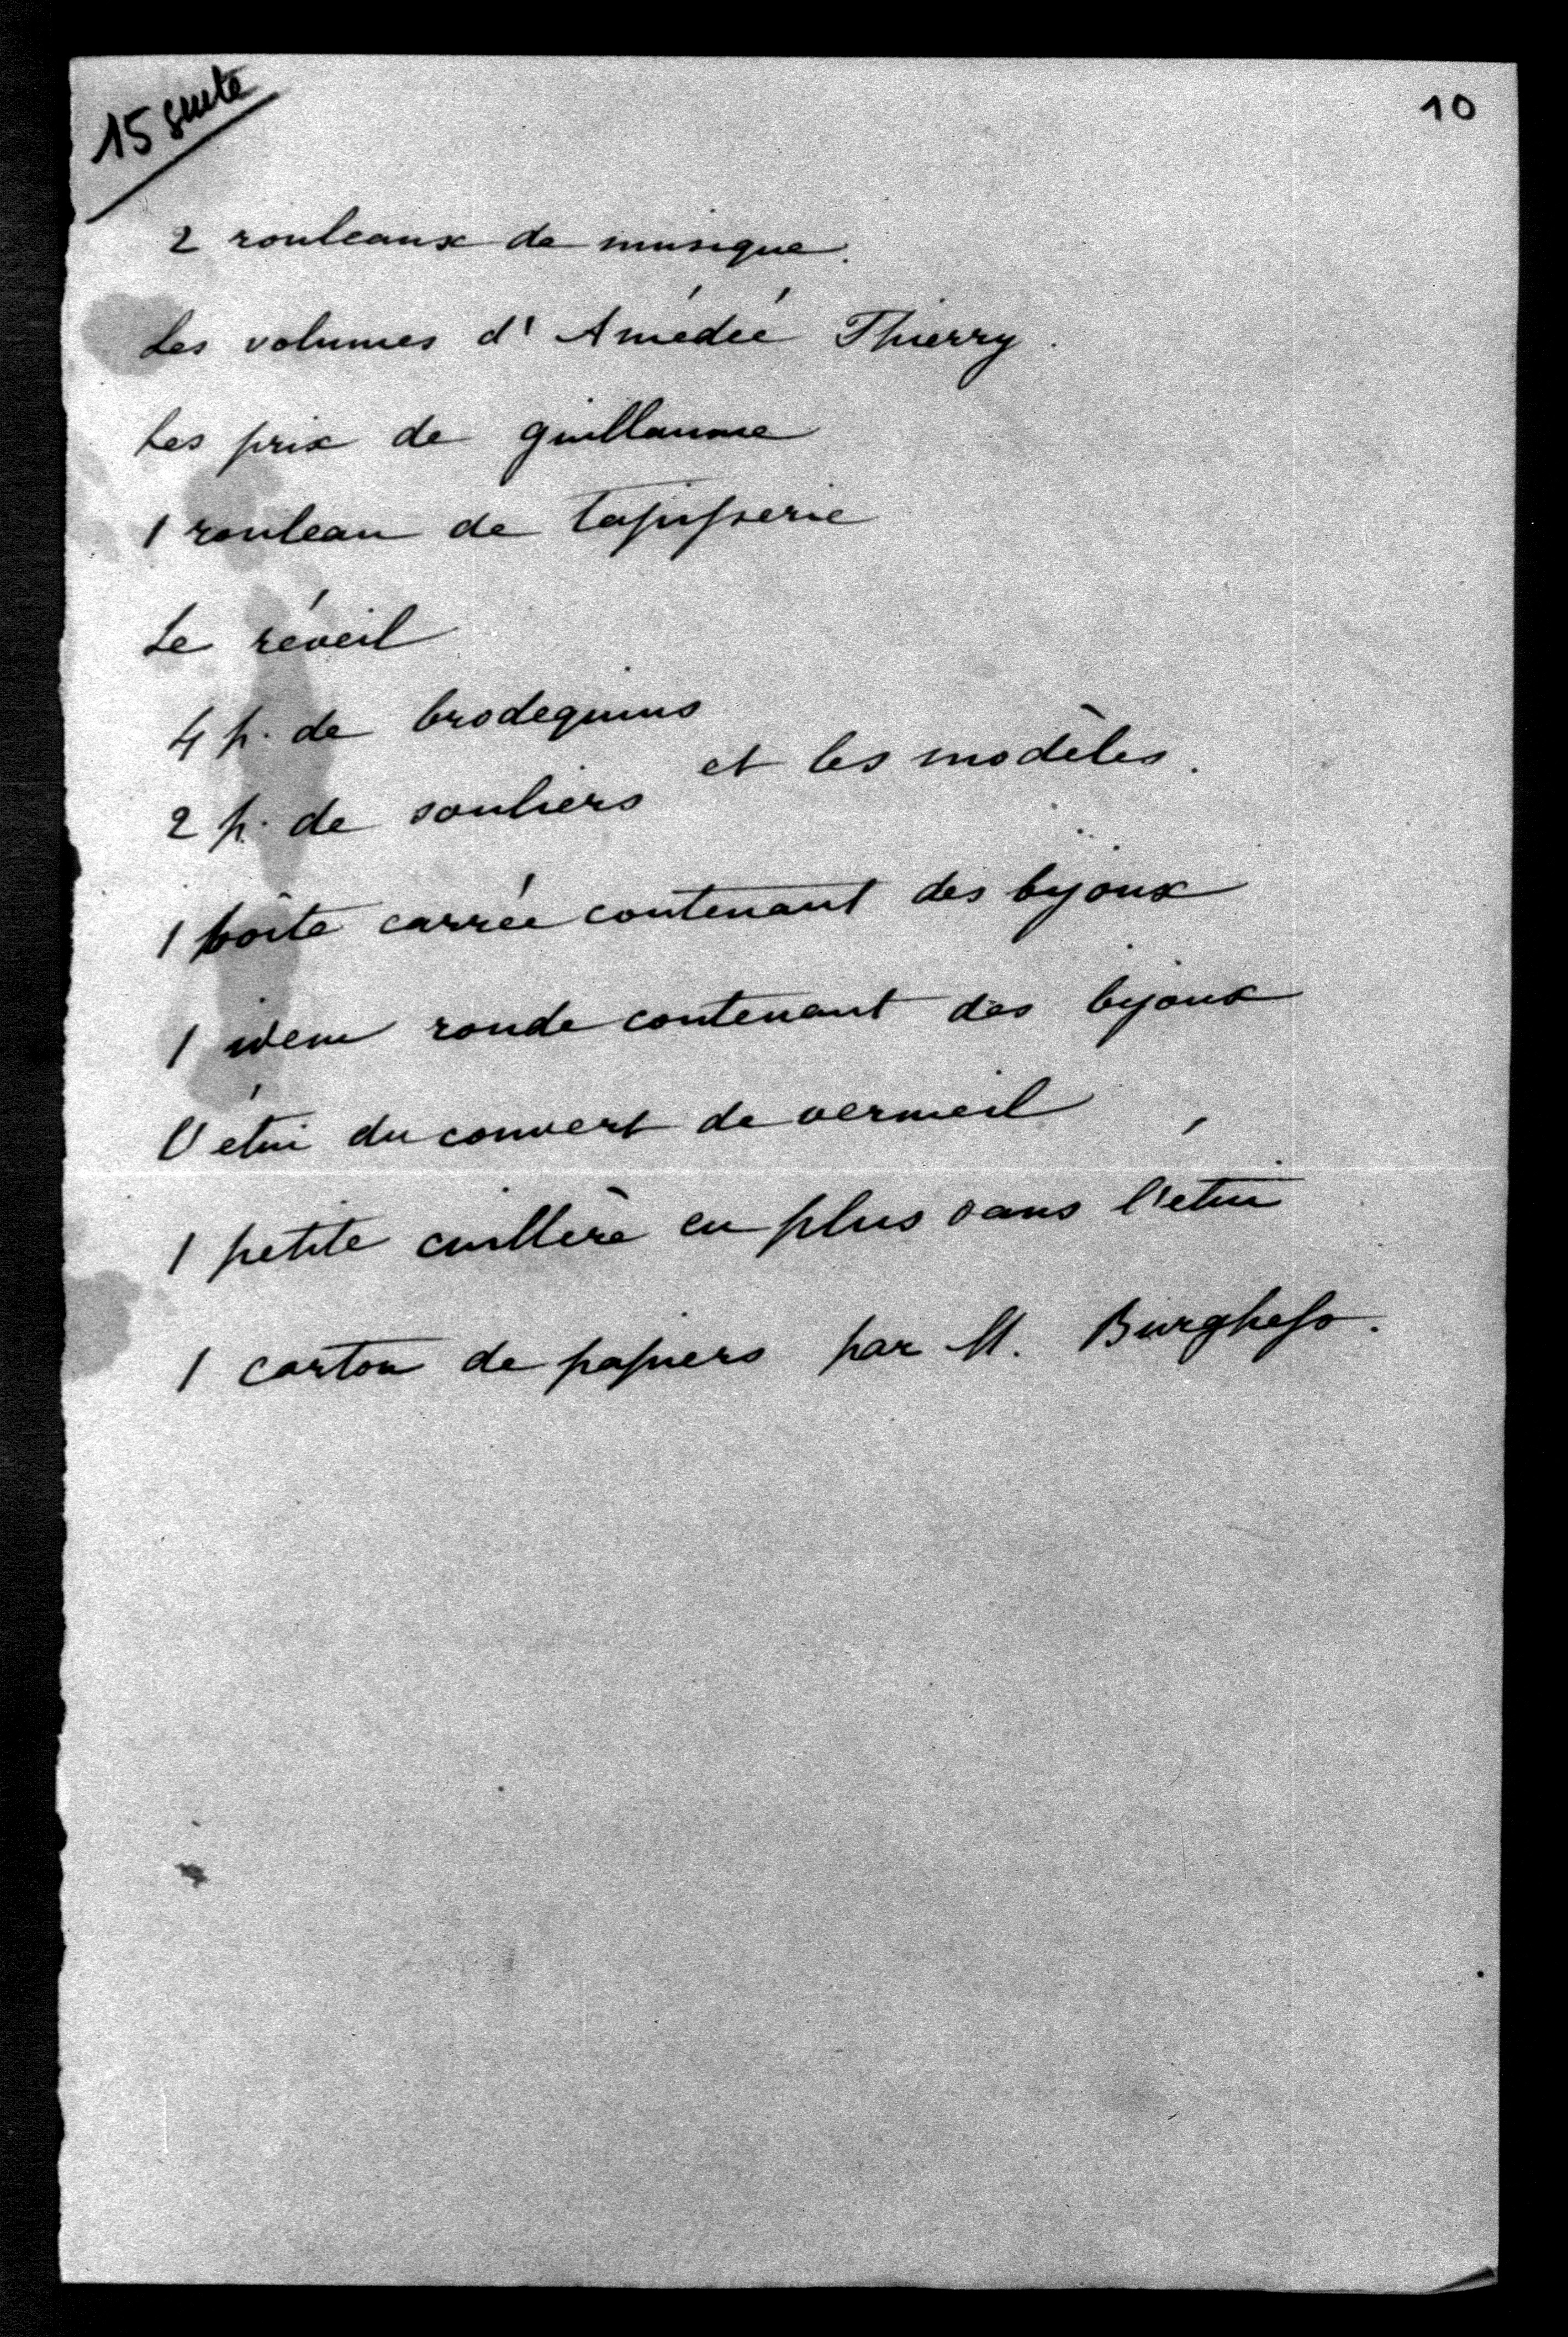 15 suite
10
2 rouleaux de musique.
Les volumes d'Amédée Thierry.
Les prix de guillaume
1 rouleau de tapisserie
Le réveil
4 p. de brodequins
et les modèles.
2 p. de souliers
1 boîte carrée contenant des bijoux
1 idem ronde contenant des bijoux
l'étui du couvert de vermeil
1 petite cuillère en plus dans l'étui
1 carton de papiers par M.